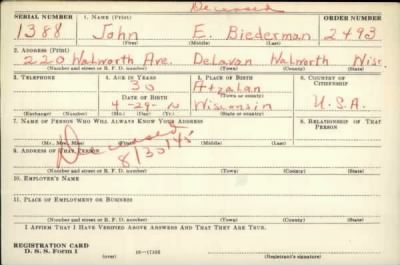 Deceased
SERIAL NUMBER 1. NAME (Print) ORDER NUMBER
1388 John E. Biederman 2493
(First) (Middle) (Last)
2. ADDRESS (Print)
220 Walworth Ave. Delavan Walworth Wisc.
(Number and street or R. F. D. number) (Town) (County) (State)
3. TELEPHONE 4. AGE IN YEARS 5. PLACE OF BIRTH 6. COUNTRY OF CITIZENSHIP
30 Aztalan
DATE OF BIRTH (Town or county)
4-29- Wisconsin U.S.A.
(Exchange) (Number) (Mo.) (Day) (Yr.) (State or country)
7. NAME OF PERSON WHO WILL ALWAYS KNOW YOUR ADDRESS 8. RELATIONSHIP OF THAT PERSON
Deceased
(Mr., Mrs., Miss) (First) (Middle) (Last)
9. ADDRESS OF THAT PERSON
8/30/45
(Number and street or R. F. D. number) (Town) (County) (State)
10. EMPLOYER'S NAME
11. PLACE OF EMPLOYMENT OR BUSINESS
(Number and street or R. F. D. number) (Town) (County) (State)
I AFFIRM THAT I HAVE VERIFIED ABOVE ANSWERS AND THAT THEY ARE TRUE.
REGISTRATION CARD
D. S. S. Form 1
(over) (Registrant's signature)